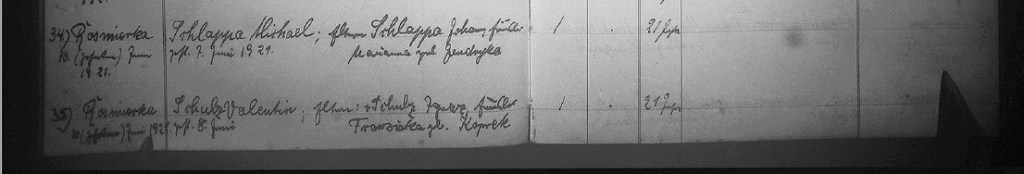 34) Rosmierka Schlappa Michael; Eltern Schlappa Johann Häusler 1 . 21 Jahre
10. (zehnten) Juni gest. 7. Juni 1921. Marianna geb. Jendryka
1921.
35) Rosmierka Schulz Valentin; Eltern: Schulz Ignaz, Häusler 1 . 21 Jahre
10. (zehnten) Juni 1921. gest. 8. Juni Franziska geb. Koprek